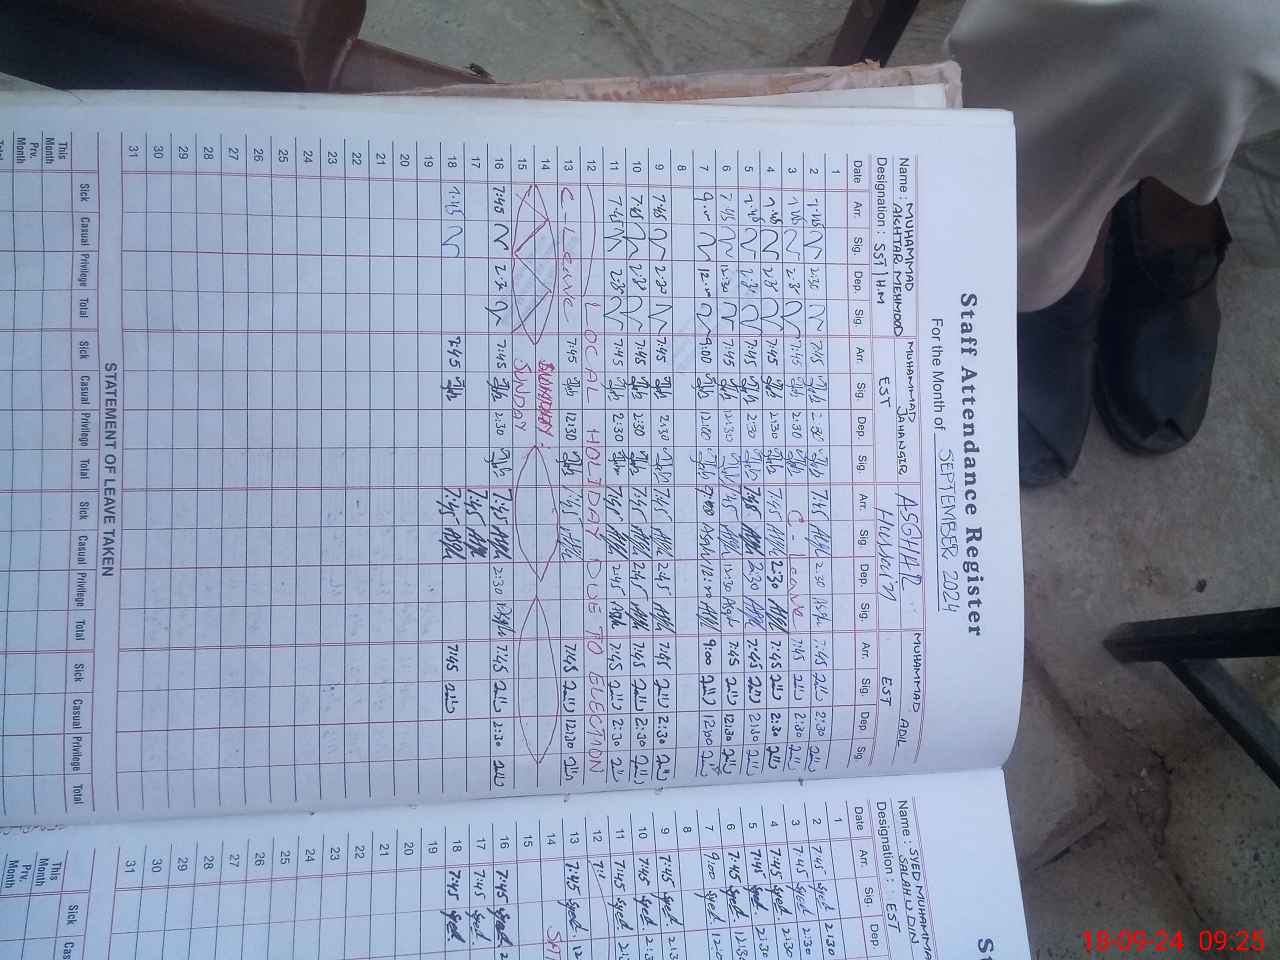 Staff Attendance Register
For the Month of SEPTEMBER 2024
Name : MUHAMMAD AKHTAR MEHMOOD MUHAMMAD JAHANGIR ASGHAR Hussain MUHAMMAD ADIL
Designation : SST / H.M EST EST
Date Arr. Sig. Dep. Sig. Arr. Sig. Dep. Sig. Arr. Sig. Dep. Sig. Arr. Sig. Dep Sig.
1
2 7:45 2:30 7:45 2:30 7:45 2:30 7:45 2:30
3 7:45 2:30 7:45 2:30 C - Leave 7:45 2:30
4 7:45 2:30 7:45 2:30 7:45 2:30 7:45 2:30
5 7:45 2:30 7:45 2:30 7:45 2:30 7:45 2:30
6 7:45 12:30 7:45 12:30 7:45 12:30 7:45 12:30
7 9:00 12:00 9:00 12:00 9:00 12:00 9:00 12:00
8
9 7:45 2:30 7:45 2:30 7:45 2:45 7:45 2:30
10 7:45 2:30 7:45 2:30 7:45 2:45 7:45 2:30
11 7:45 2:30 7:45 2:30 7:45 2:45 7:45 2:30
12 LOCAL HOLIDAY DUE TO ELECTION
13 C - Leave 7:45 12:30 7:45 7:45 12:30
14
15 SUNDAY
16 7:45 7:45 2:30 7:45 2:30 7:45 2:30
17 7:45
18 7:45 7:45 7:45 7:45
19
20
21
22
23
24
25
26
27
28
29
30
31
STATEMENT OF LEAVE TAKEN
Sick Casual Privilege Total Sick Casual Privilege Total Sick Casual Privilege Total Sick Casual Privilege Total
This Month
Prv. Month
Total
Name : SYED MUHAMMA SALAH U DIN
Designation : EST
Date Arr. Sig. Dep
1
2 7:45 Syed 2:30
3 7:45 Syed 2:30
4 7:45 Syed 2:30
5 7:45 Syed 2:30
6 7:45 Syed 12:30
7 9:00 Syed
8
9 7:45 Syed
10 7:45 Syed
11 7:45 Syed
12
13 7:45 Syed
14
15
16 7:45 Syed
17 7:45 Syed
18 7:45 Syed
19
20
21
22
23
24
25
26
27
28
29
30
31
Sick
This Month
Prv. Month
18-09-24 09:25